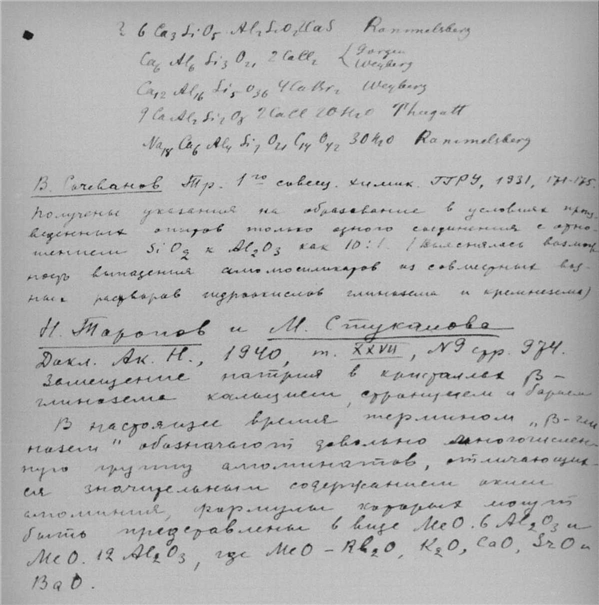 6 Ca3SiO5 Al2SiO7 2CaS Rammelsberg
Ca6 Al6 Si3O21 2CaCl2 { Gorgeu
Weyberg
Ca12 Al16 Si5 O36 4CaBr2 Weyberg
9CaAl2Si2O8 2CaCl 20H2O Thugutt
Rammelsberg
В. Сочеванов Тр. 1го совещ. химик. ГГРУ, 1931, 171-175.
Получены указания на образование в условиях произ
веденных опытов только одного соединения с отно-
шением SiO2 к Al2O3 как 10:1. (Выяснялась возмож
ность выпадения алюмосиликатов из совместных вод
ных растворов гидроокислов глинозема и кремнезема)
Н. Торопов и М. Стукалова
Докл. Ак. Н., 1940, т. XXVII, N9 стр. 974.
Замещение натрия в кристаллах β-
глинозема кальцием, стронцием и барием
В настоящее время термином „β-гли
нозем" обозначают довольно многочислен
ную группу алюминатов, отличающих-
ся значительным содержанием окиси
алюминия, формулы которых могут
быть представлены в виде MeO. 6 Al2O3 и
MeO. 12 Al2O3, где MeO - Rb2O, K2O, CaO, SrO и
BaO.